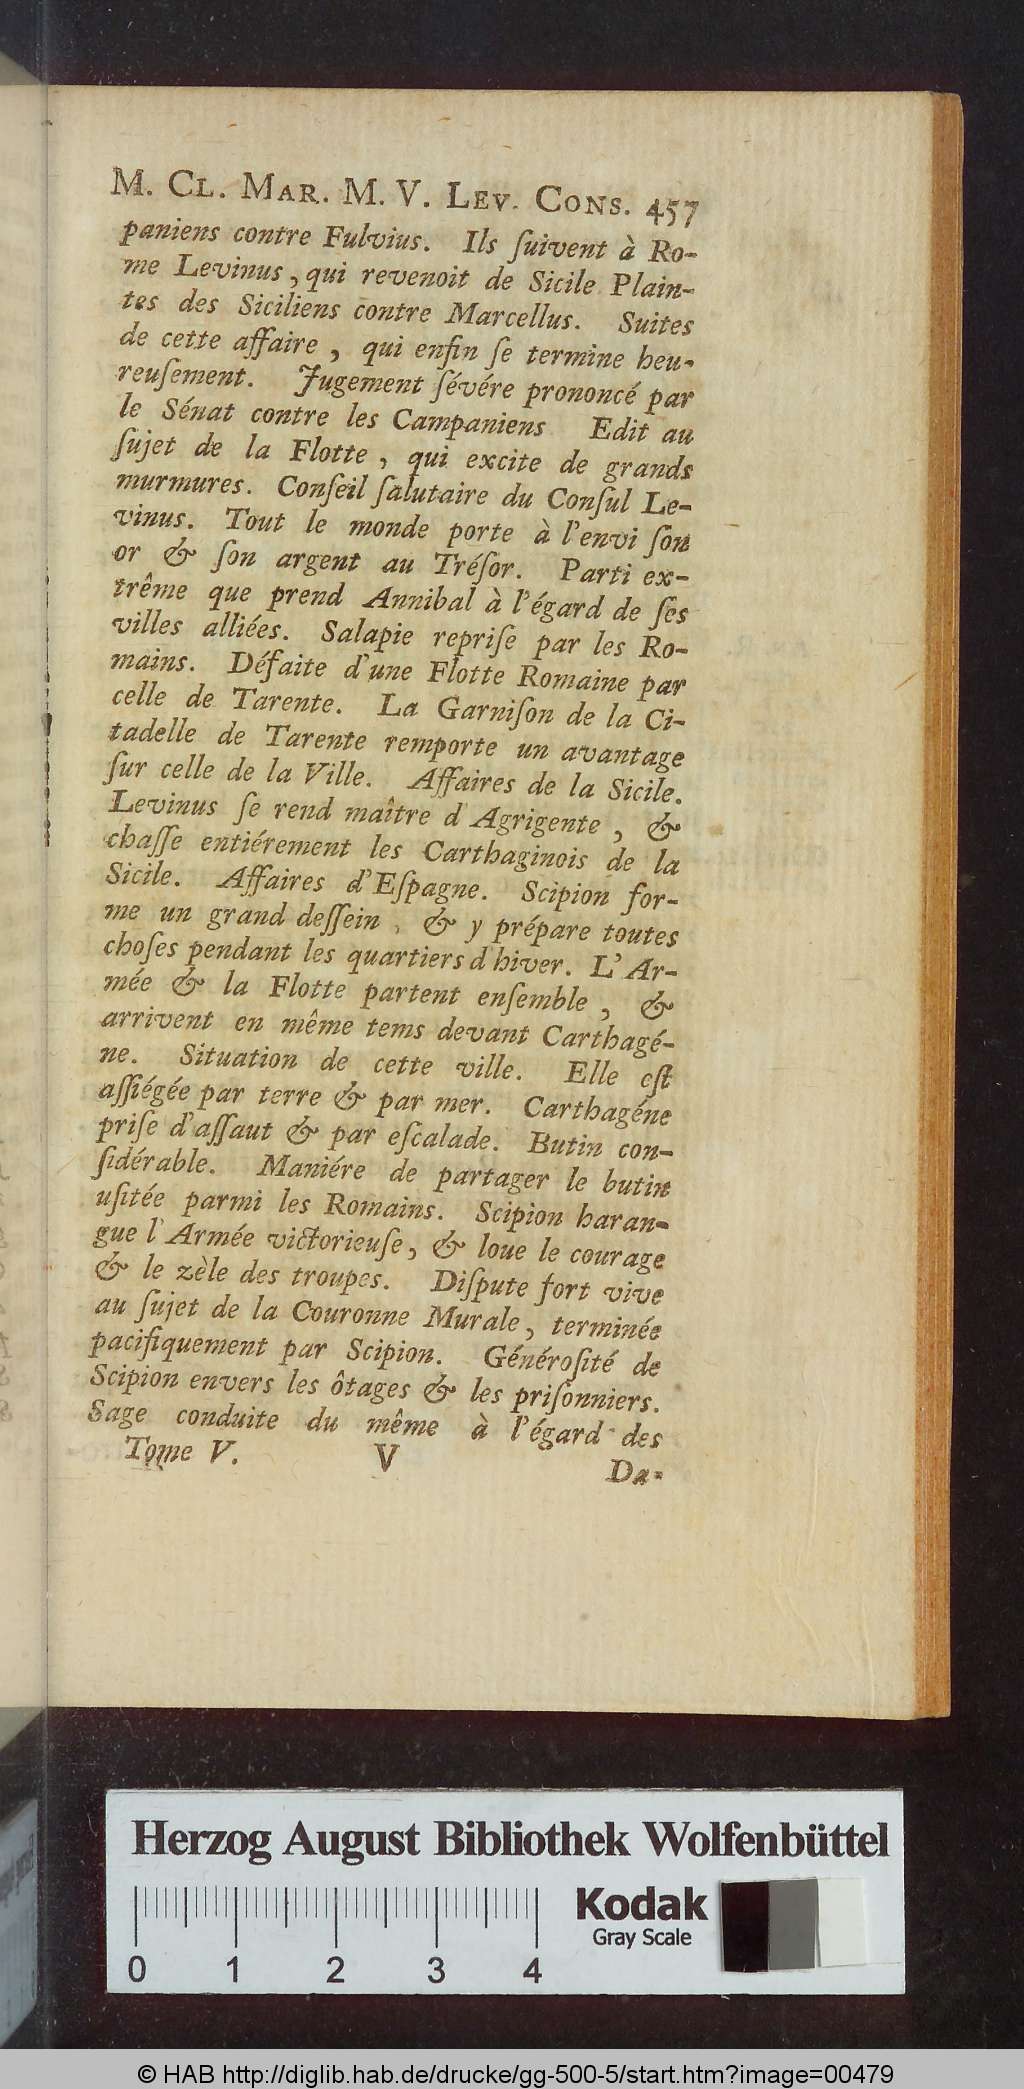 M. CL. MAR. M. V. LEV. CONS. 457
paniens contre Fulvius. Ils ſuivent à Ro-
me Levinus, qui revenoit de Sicile Plain-
tes des Siciliens contre Marcellus. Suites
de cette affaire, qui enfin ſe termine heu-
reuſement. Jugement ſévére prononcé par
le Sénat contre les Campaniens Edit au
ſujet de la Flotte, qui excite de grands
murmures. Conſeil ſalutaire du Conſul Le-
vinus. Tout le monde porte à l'envi ſon
or & ſon argent au Tréſor. Parti ex-
trême que prend Annibal à l'égard de ſes
villes alliées. Salapie repriſe par les Ro-
mains. Défaite d'une Flotte Romaine par
celle de Tarente. La Garniſon de la Ci-
tadelle de Tarente remporte un avantage
ſur celle de la Ville. Affaires de la Sicile.
Levinus ſe rend maître d'Agrigente, &
chaſſe entiérement les Carthaginois de la
Sicile. Affaires d'Eſpagne. Scipion for-
me un grand deſſein, & y prépare toutes
choſes pendant les quartiers d'hiver. L'Ar-
mée & la Flotte partent enſemble, &
arrivent en même tems devant Carthagé-
ne. Situation de cette ville. Elle eſt
aſſiégée par terre & par mer. Carthagéne
priſe d'aſſaut & par eſcalade. Butin con-
ſidérable. Maniére de partager le butin
uſitée parmi les Romains. Scipion haran-
gue l'Armée victorieuſe, & loue le courage
& le zèle des troupes. Diſpute fort vive
au ſujet de la Couronne Murale, terminée
pacifiquement par Scipion. Généroſité de
Scipion envers les ôtages & les priſonniers.
Sage conduite du même à l'égard des
Tome V. V Da-
Herzog August Bibliothek Wolfenbüttel
Kodak
Gray Scale
0 1 2 3 4
© HAB http://diglib.hab.de/drucke/gg-500-5/start.htm?image=00479